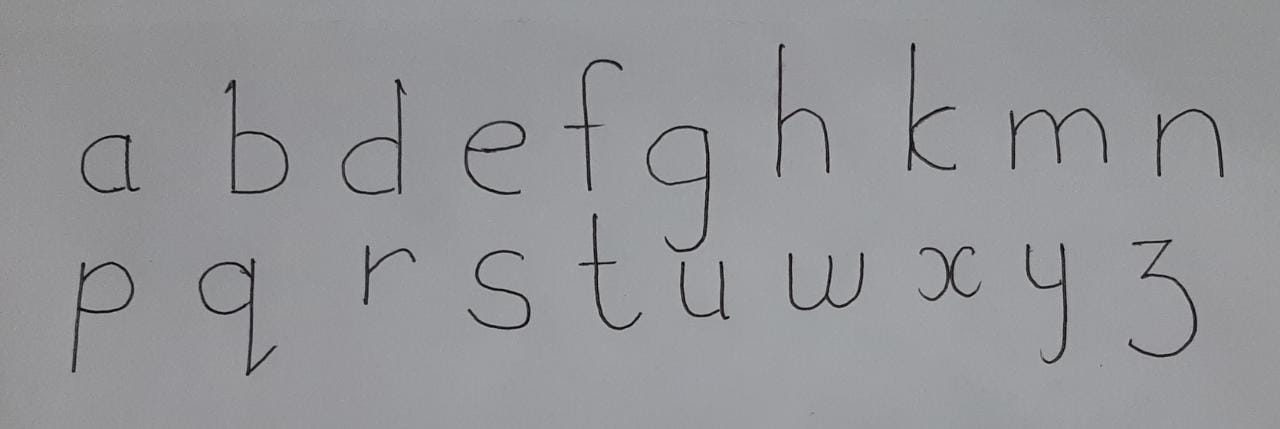 a b d e f g h k m n
p q r s t u w x y z